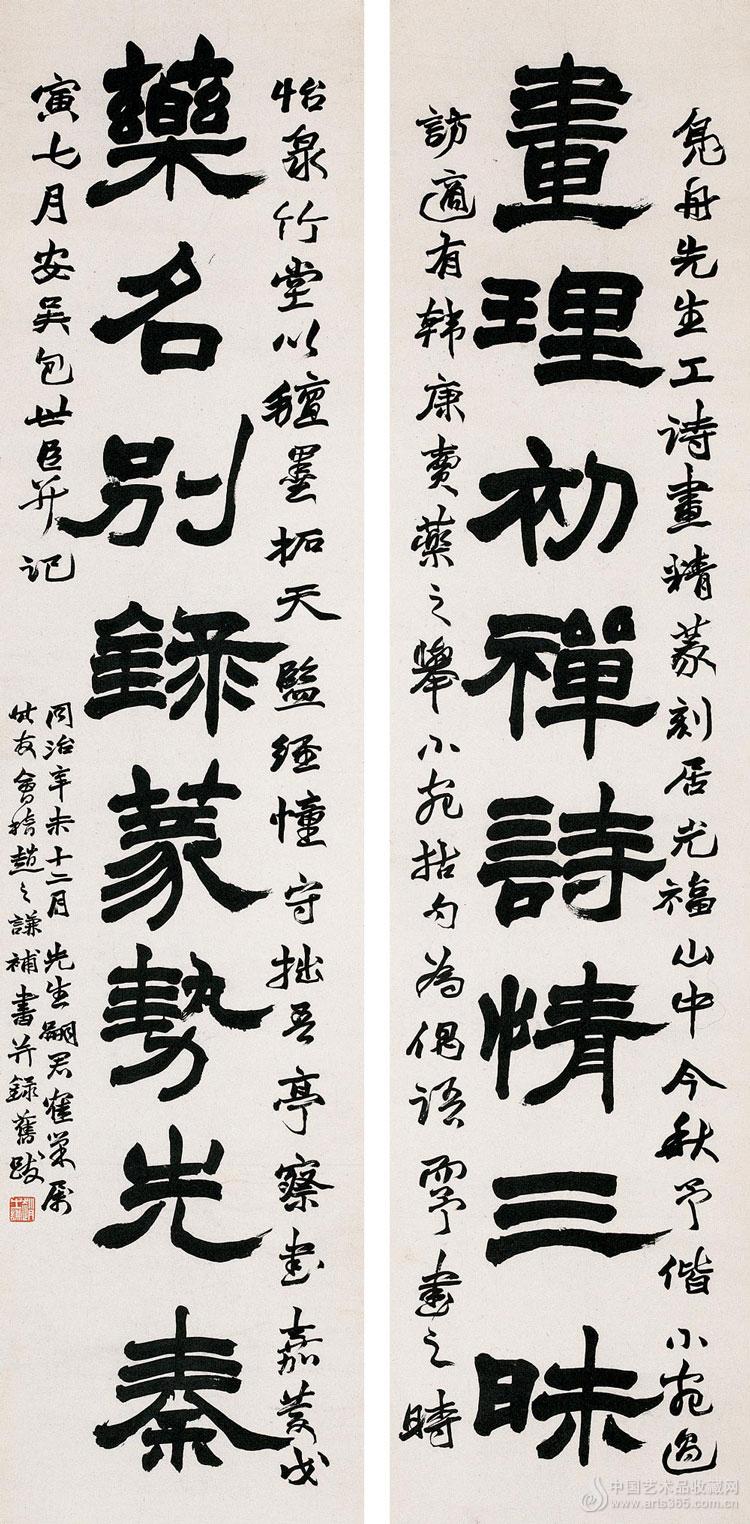 鳧舟先生工詩畫精篆刻居光福山中今秋予偕小宛過
畫理初禪詩情三昧
訪適有韓康賣藥之舉小宛拈句為偶語而予書之時
怡泉竹堂以氊墨拓天監經幢守拙吾亭察書嘉慶戊
藥名別錄篆勢先秦
寅七月安吳包世臣并記
同治辛未十二月先生嗣君隺巢屬
友會稽趙之謙補書并録舊跋
中国艺术品收藏网
www.arts365.com.cn